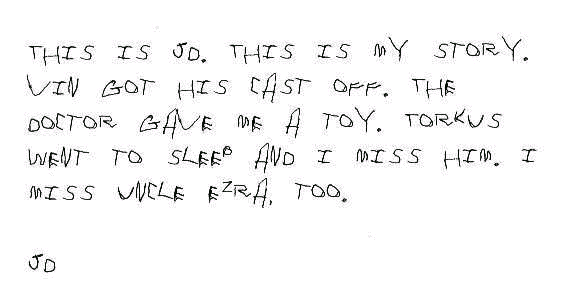 THIS IS JD. THIS IS MY STORY.
VIN GOT HIS CAST OFF. THE
DOCTOR GAVE ME A TOY. TORKUS
WENT TO SLEEP AND I MISS HIM. I
MISS UNCLE EZRA, TOO.
JD